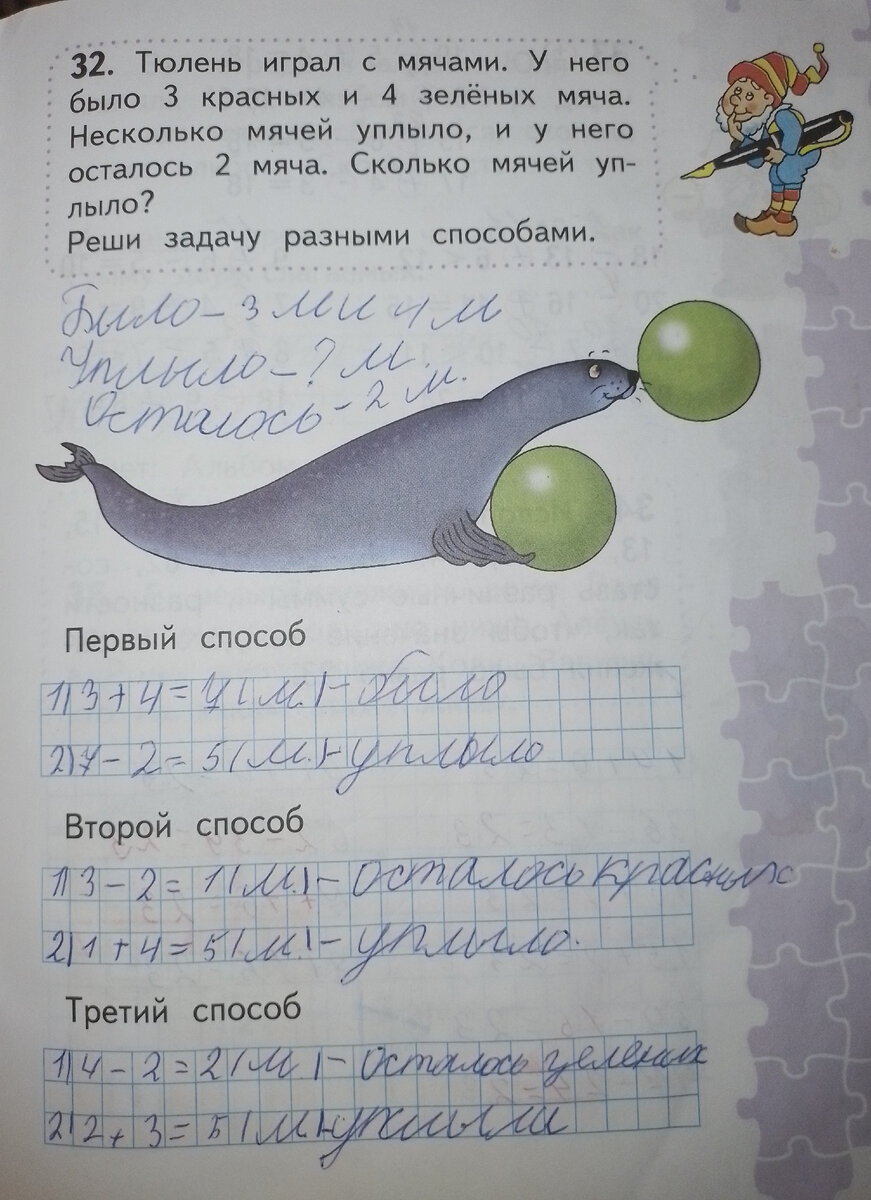 32. Тюлень играл с мячами. У него
было 3 красных и 4 зелёных мяча.
Несколько мячей уплыло, и у него
осталось 2 мяча. Сколько мячей уп-
лыло?
Реши задачу разными способами.
Было – 3 м и 4 м
Уплыло – ? м.
Осталось – 2 м.
Первый способ
1) 3 + 4 = 7 (м.) – было
2) 7 – 2 = 5 (м.) – уплыло
Второй способ
1) 3 – 2 = 1 (м.) – осталось красных
2) 1 + 4 = 5 (м.) – уплыло.
Третий способ
1) 4 – 2 = 2 (м.) – осталось зеленых
2) 2 + 3 = 5 (м.) – уплыли